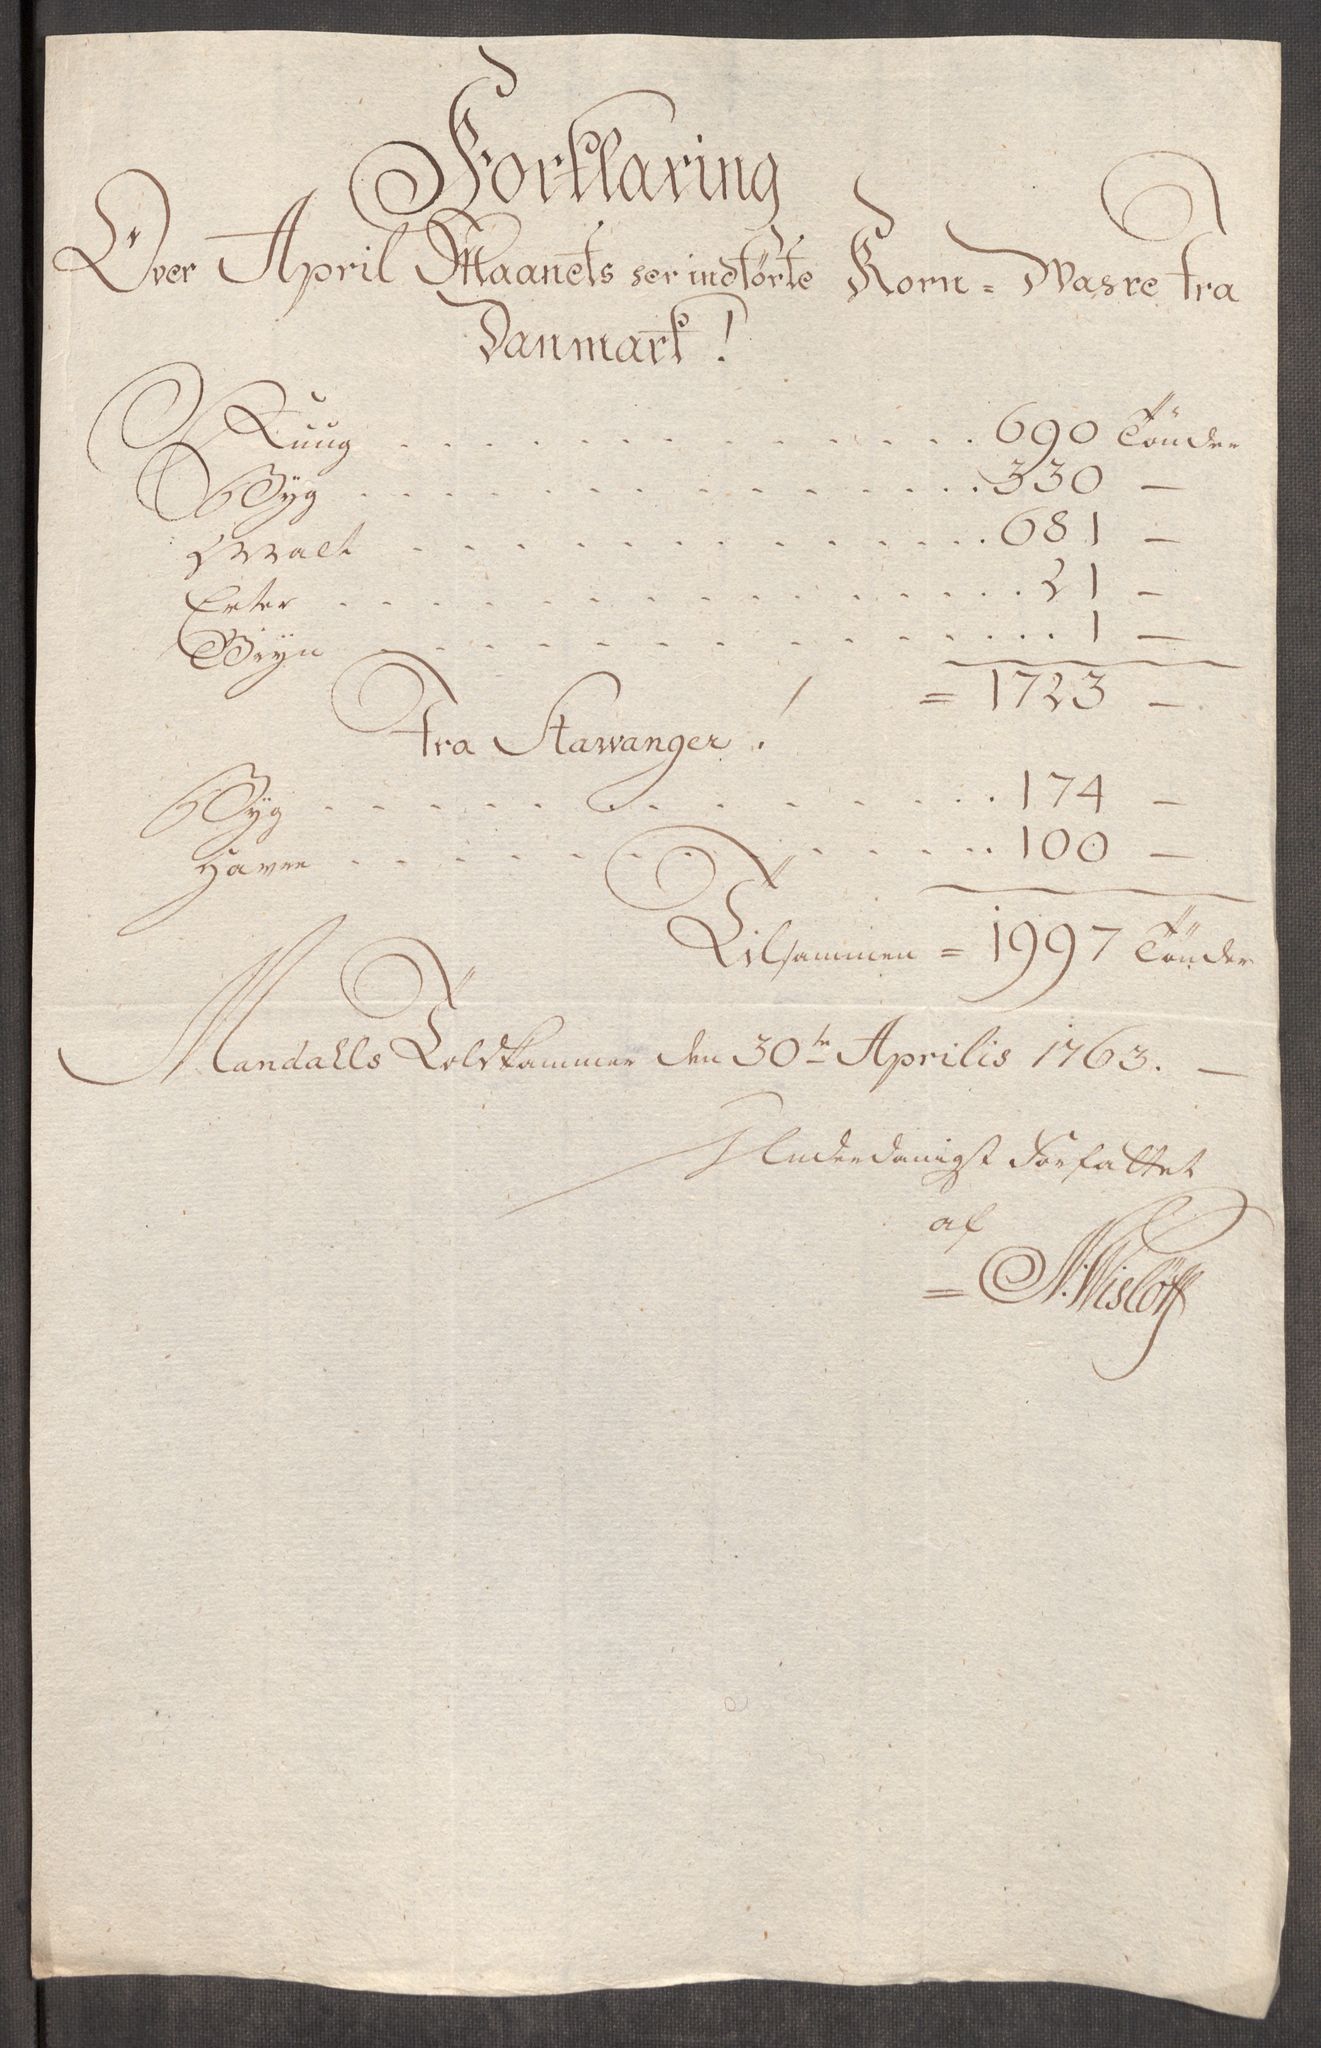 Forklaring
Over April Maanets her indførte Korn = Wahre fra
Danmark!
Ruug . . . . . . . . . . . . 690 Tönder
Byg . . . . . . . . . . . . 330 —
Malt . . . . . . . . . . . . 681 —
Erter . . . . . . . . . . . . 21 —
Gryn . . . . . . . . . . . . 1 —
= 1723 —
Fra Stawanger!
Byg . . . . . . . . . . . . 174 —
Havre . . . . . . . . . . . . 100 —
Tilsammen = 1997 Tönder
Mandahls Toldkammer den 30te Aprilis 1763. —
Underdanigst Forfattet
af
= N: Wislöff